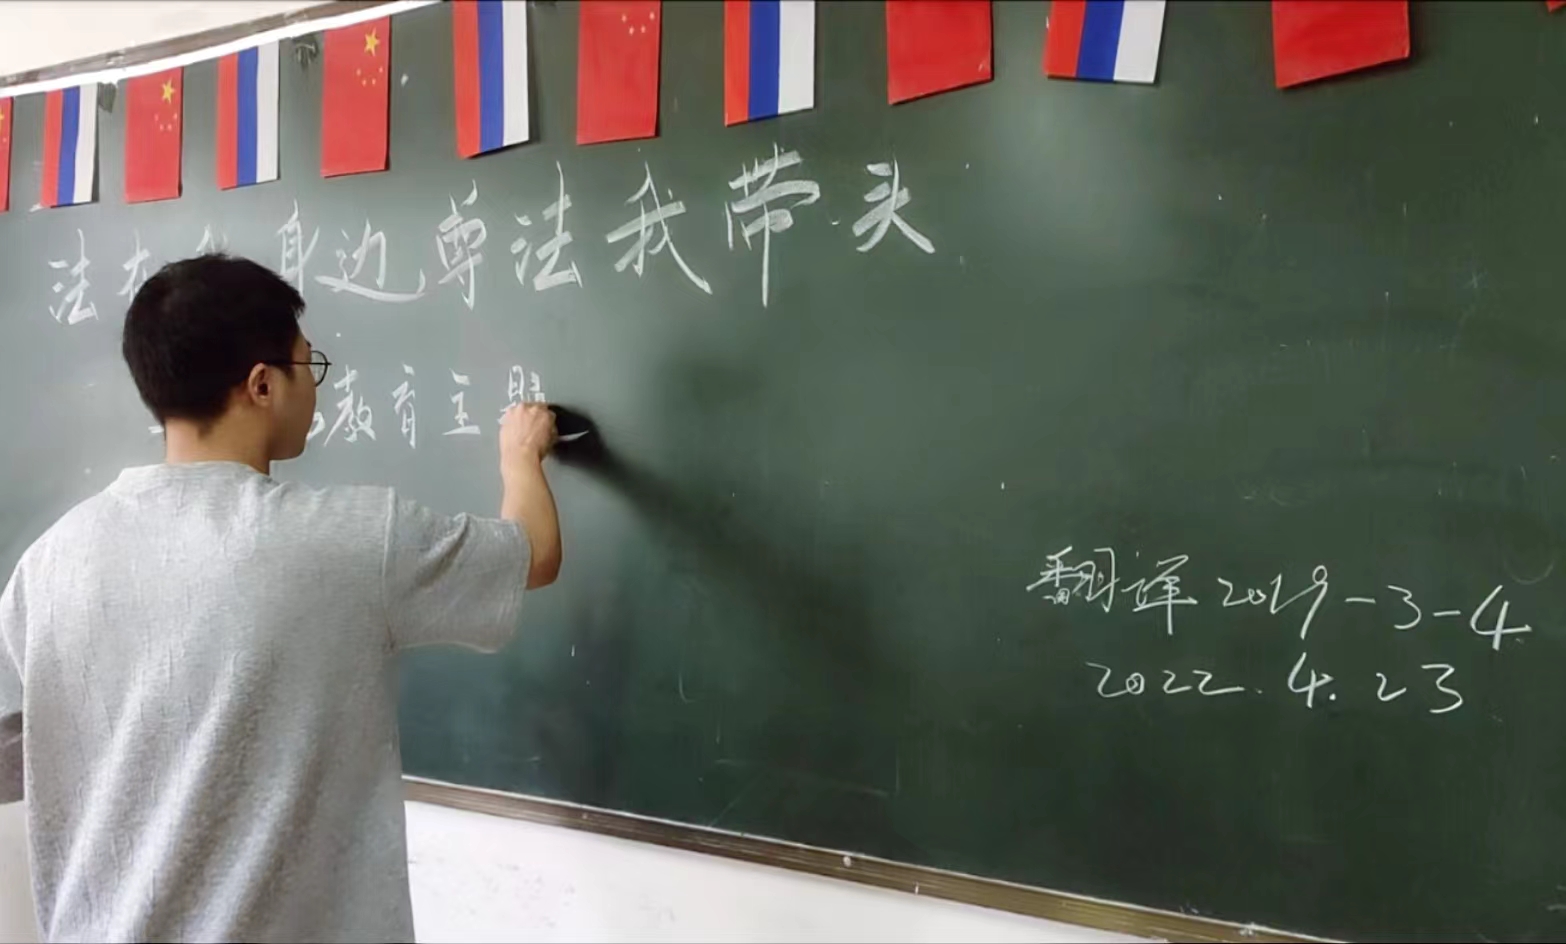 法在我身边 尊法我带头
教育主题
翻译2019-3-4
2022.4.23